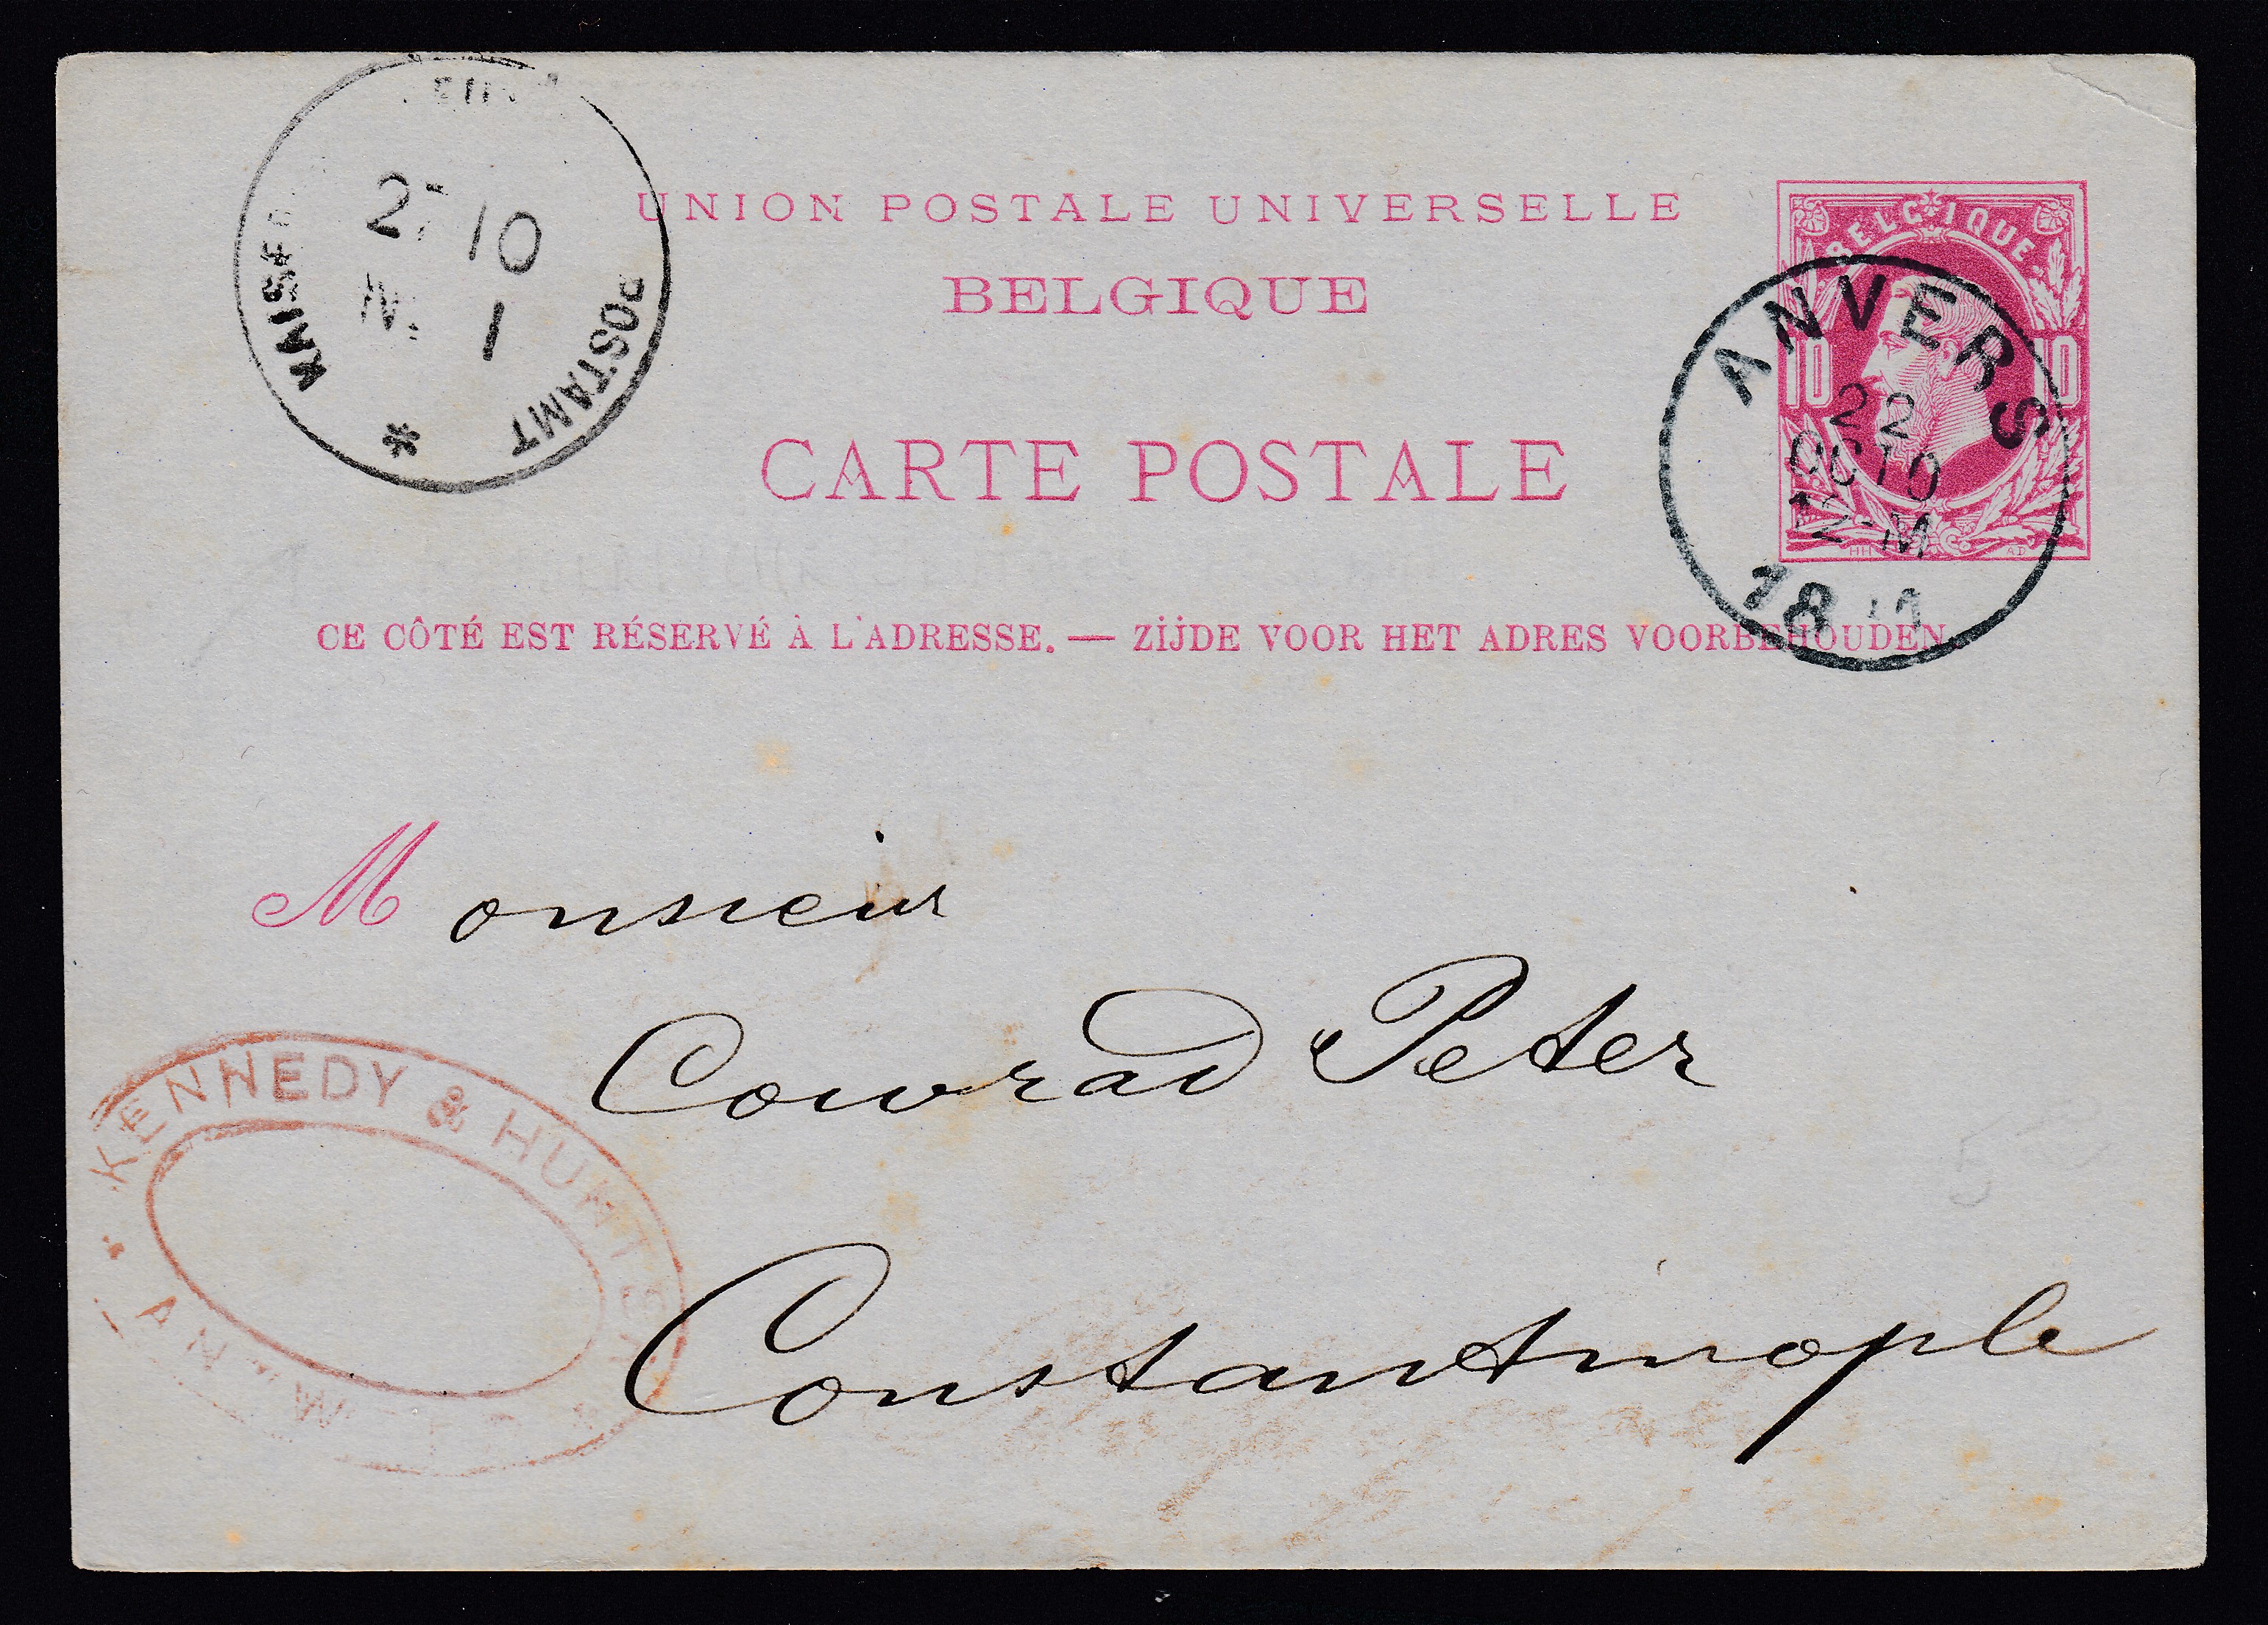 27 10
1
POSTAMT
UNION POSTALE UNIVERSELLE
BELGIQUE
CARTE POSTALE
BELGIQUE
10 10
ANVERS
22
OCTO
12-M
CE CÔTÉ EST RÉSERVÉ À L'ADRESSE. — ZIJDE VOOR HET ADRES VOORBEHOUDEN.
Monsieur
Conrad Peter
Constantinople
KENNEDY & HUNTER